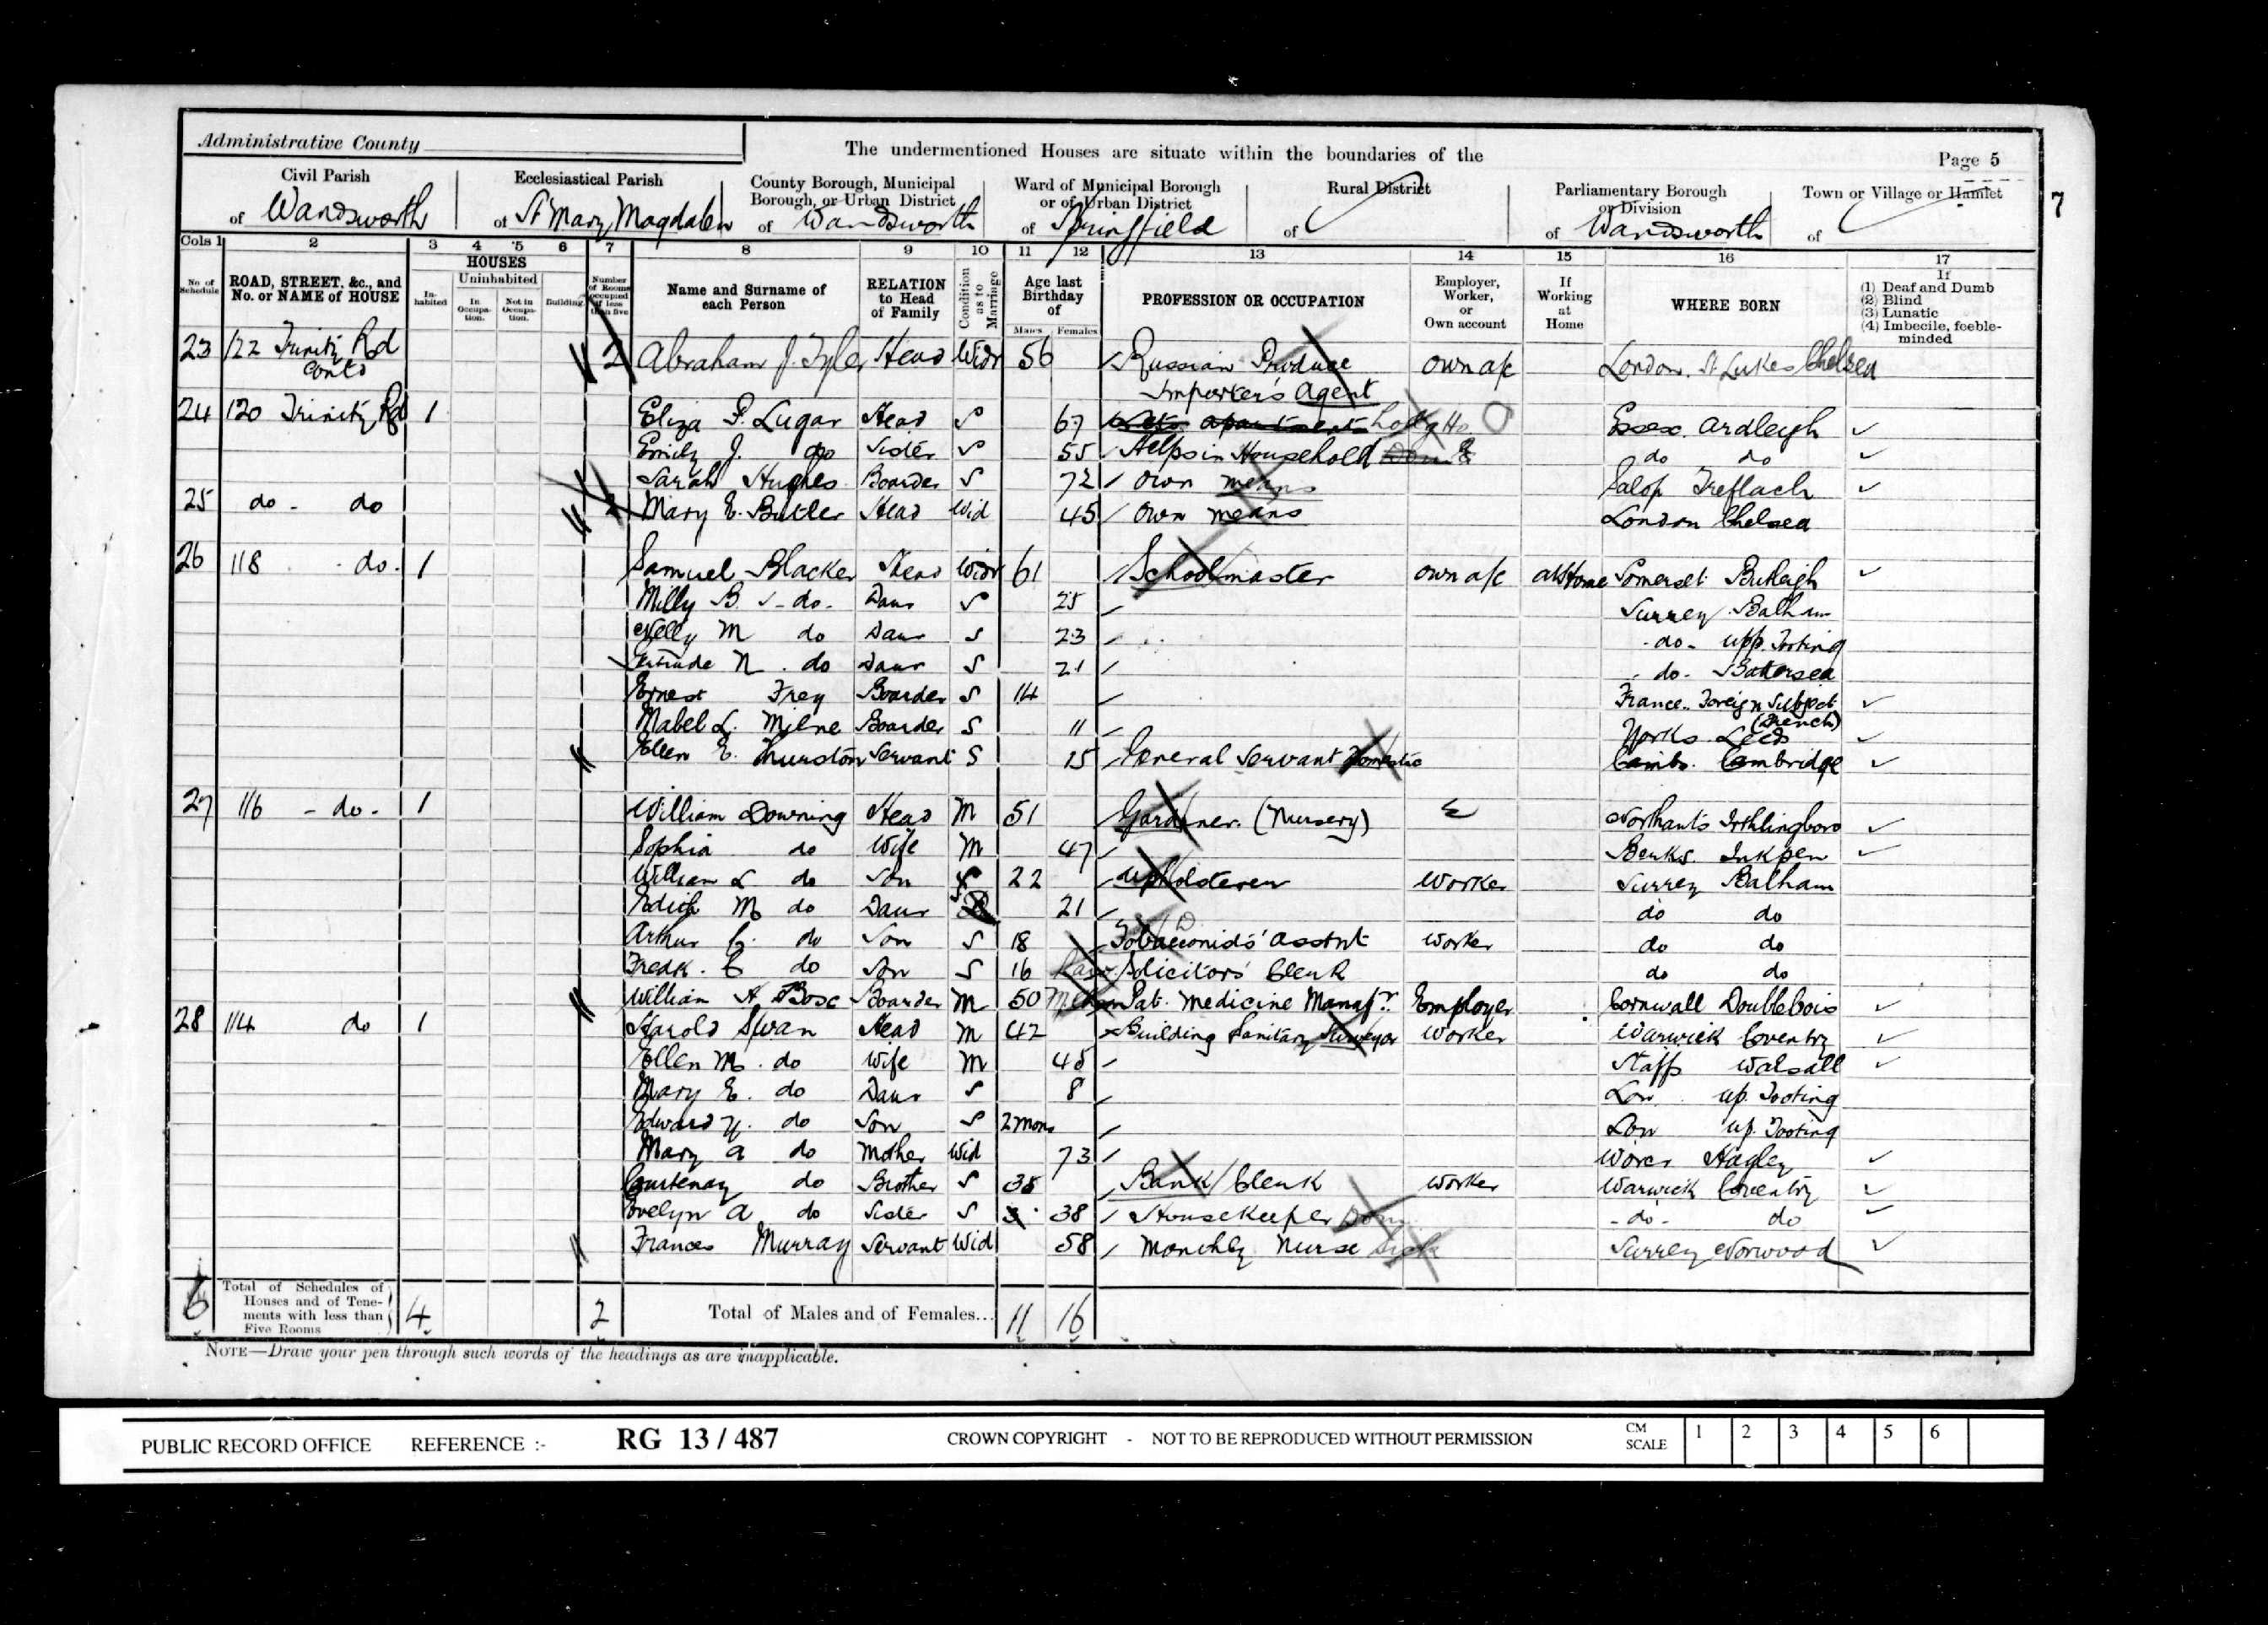 Administrative County
The undermentioned Houses are situate within the boundaries of the
Page 5
7
Civil Parish of Wandsworth
Ecclesiastical Parish of St Mary Magdalen
County Borough, Municipal Borough, or Urban District of Wandsworth
Ward of Municipal Borough or of Urban District of Springfield
Rural District of
Parliamentary Borough or Division of Wandsworth
Town or Village or Hamlet of
Cols 1 2 3 4 5 6 7 8 9 10 11 12 13 14 15 16 17
No of Schedule
ROAD, STREET, &c., and No. or NAME of HOUSE
HOUSES
Inhabited
Uninhabited
In Occupation.
Not in Occupation.
Building
Number of Rooms occupied if less than five
Name and Surname of each Person
RELATION to Head of Family
Condition as to Marriage
Age last Birthday of
Males Females
PROFESSION OR OCCUPATION
Employer, Worker, or Own account
If Working at Home
WHERE BORN
If (1) Deaf and Dumb (2) Blind (3) Lunatic (4) Imbecile, feeble-minded
23 122 Trinity Rd contd 2 Abraham J. Tyler Head Widr 56 Russian Produce Importers Agent own a/c London. St Lukes Chelsea
24 120 Trinity Rd 1 Eliza F. Lugar Head S 67 Lets apartments Essex. Ardleigh
Emily J. do Sister S 55 Helps in Household Dom do do
Sarah Hughes Boarder S 72 Own means Salop Treflach
25 do - do Mary E. Butler Head Wid 45 Own means London Chelsea
26 118 - do. 1 Samuel Blacker Head Widr 61 Schoolmaster own a/c at Home Somerset Butleigh
Milly B. - do - Daur S 25 Surrey Balham
Nelly M do Daur S 23 - do - Upp. Tooting
Gertrude N. do Daur S 21 - do - Battersea
Ernest Frey Boarder S 14 France. Foreign Subject (French)
Mabel L. Milne Boarder S 11 Yorks Leeds
Ellen E. Thurston Servant S 15 General Servant Domestic Cambs. Cambridge
27 116 - do - 1 William Downing Head M 51 Gardener. (Nursery) Northants Irthlingboro
Sophia do Wife M 47 Berks. Inkpen
William L do Son S 22 Upholsterer Worker Surrey Balham
Edith M do Daur S 21 do do
Arthur C. do Son S 18 Tobacconists' Assnt Worker do do
Fredk. C do Son S 16 Law Solicitors' Clerk do do
William H. Bose Boarder M 50 Pat. Medicine Manafr. Employer Cornwall Doublebois
28 114 do 1 Harold Swan Head M 42 Building Sanitary Surveyor Worker Warwick Coventry
Ellen M. do Wife M Staffs Walsall
Mary E. do Daur S 8 Lon up. Tooting
Edward Y. do Son S 2 mons Lon up. Tooting
Mary A do Mother Wid 73 Worcs Hagley
Courtenay do Brother S Bank Clerk Worker Warwick Coventry
Evelyn A do Sister S 38 Housekeeper Dom - do - do
Frances Murray Servant Wid 58 Monthly Nurse Sick Surrey Norwood
6 Total of Schedules of Houses and of Tenements with less than Five Rooms 4 2 Total of Males and of Females... 11 16
NOTE—Draw your pen through such words of the headings as are inapplicable.
PUBLIC RECORD OFFICE REFERENCE :- RG 13 / 487 CROWN COPYRIGHT - NOT TO BE REPRODUCED WITHOUT PERMISSION CM SCALE 1 2 3 4 5 6